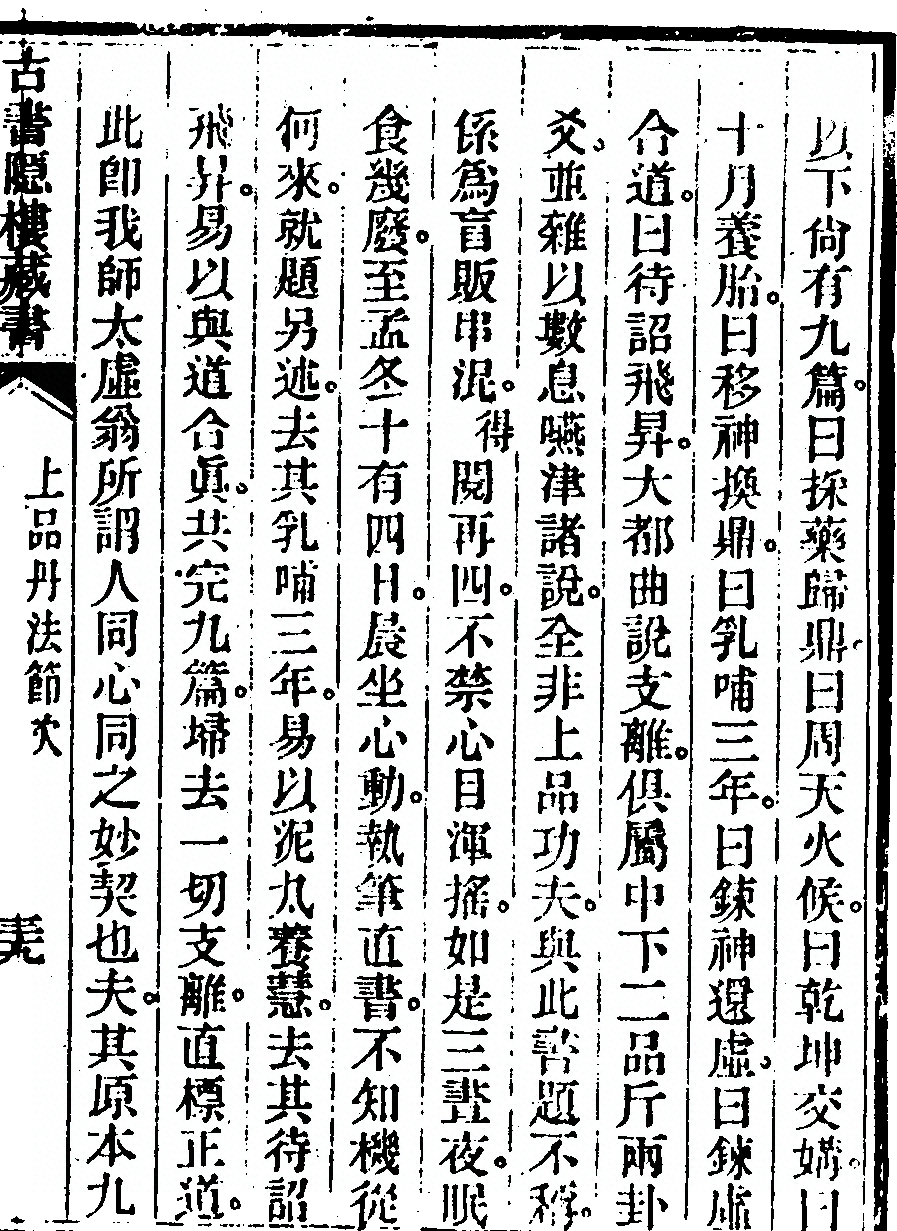 以下尙有九篇。曰採藥歸鼎。曰周天火候。曰乾坤交媾。曰
十月養胎。曰移神換鼎。曰乳哺三年。曰鍊神還虛。曰鍊虛
合道。曰待詔飛昇。大都曲說支離。俱屬中下二品斤兩卦
爻。並雜以數息嚥津諸說。全非上品功夫。與此書題不稱。
係爲盲販串混。得閱再四。不禁心目渾搖。如是三晝夜。眠
食幾廢。至孟冬十有四日。晨坐心動。執筆直書。不知機從
何來。就題另述。去其乳哺三年。易以泥丸養慧。去其待詔
飛昇。易以與道合眞。共完九篇。埽去一切支離。直標正道。
此卽我師太虛翁所謂人同心同之妙契也夫。其原本九
古書隱樓藏書
上品丹法節次